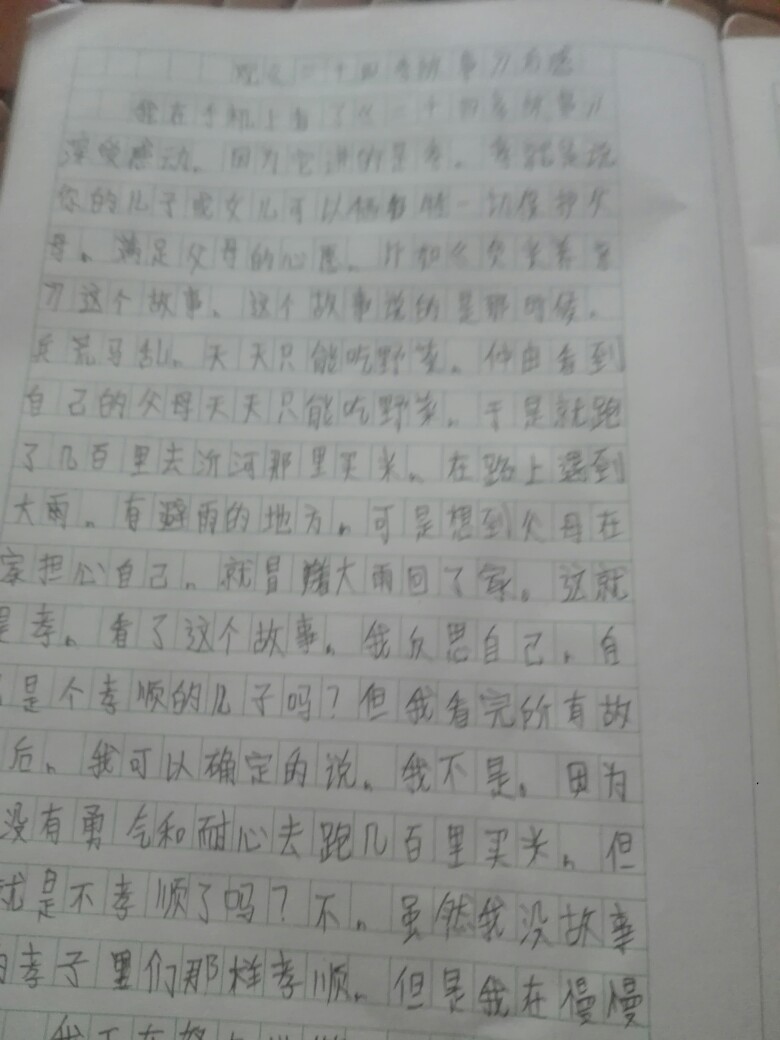 观《二十四孝故事》有感
我在手机上看了《二十四孝故事》
深受感动、因为它讲的是孝。孝就是说
你的儿子或女儿可以牺牲一切保护父
母。满足父母的心愿、比如《负米养亲
》这个故事、这个故事说的是那时候，
兵荒马乱、天天只能吃野菜。仲由看到
自己的父母天天只能吃野菜。于是就跑
了几百里去沂河那里买米。在路上遇到
大雨。有避雨的地方。可是想到父母在
家担心自己。就冒着大雨回了家。这就
是孝。看了这个故事。我反思自己。自
是个孝顺的儿子吗？但我看完所有故
后、我可以确定的说。我不是。因为
没有勇气和耐心去跑几百里买米。但
就是不孝顺了吗？不。虽然我没故事
孝子里们那样孝顺。但是我在慢慢
我正在努力